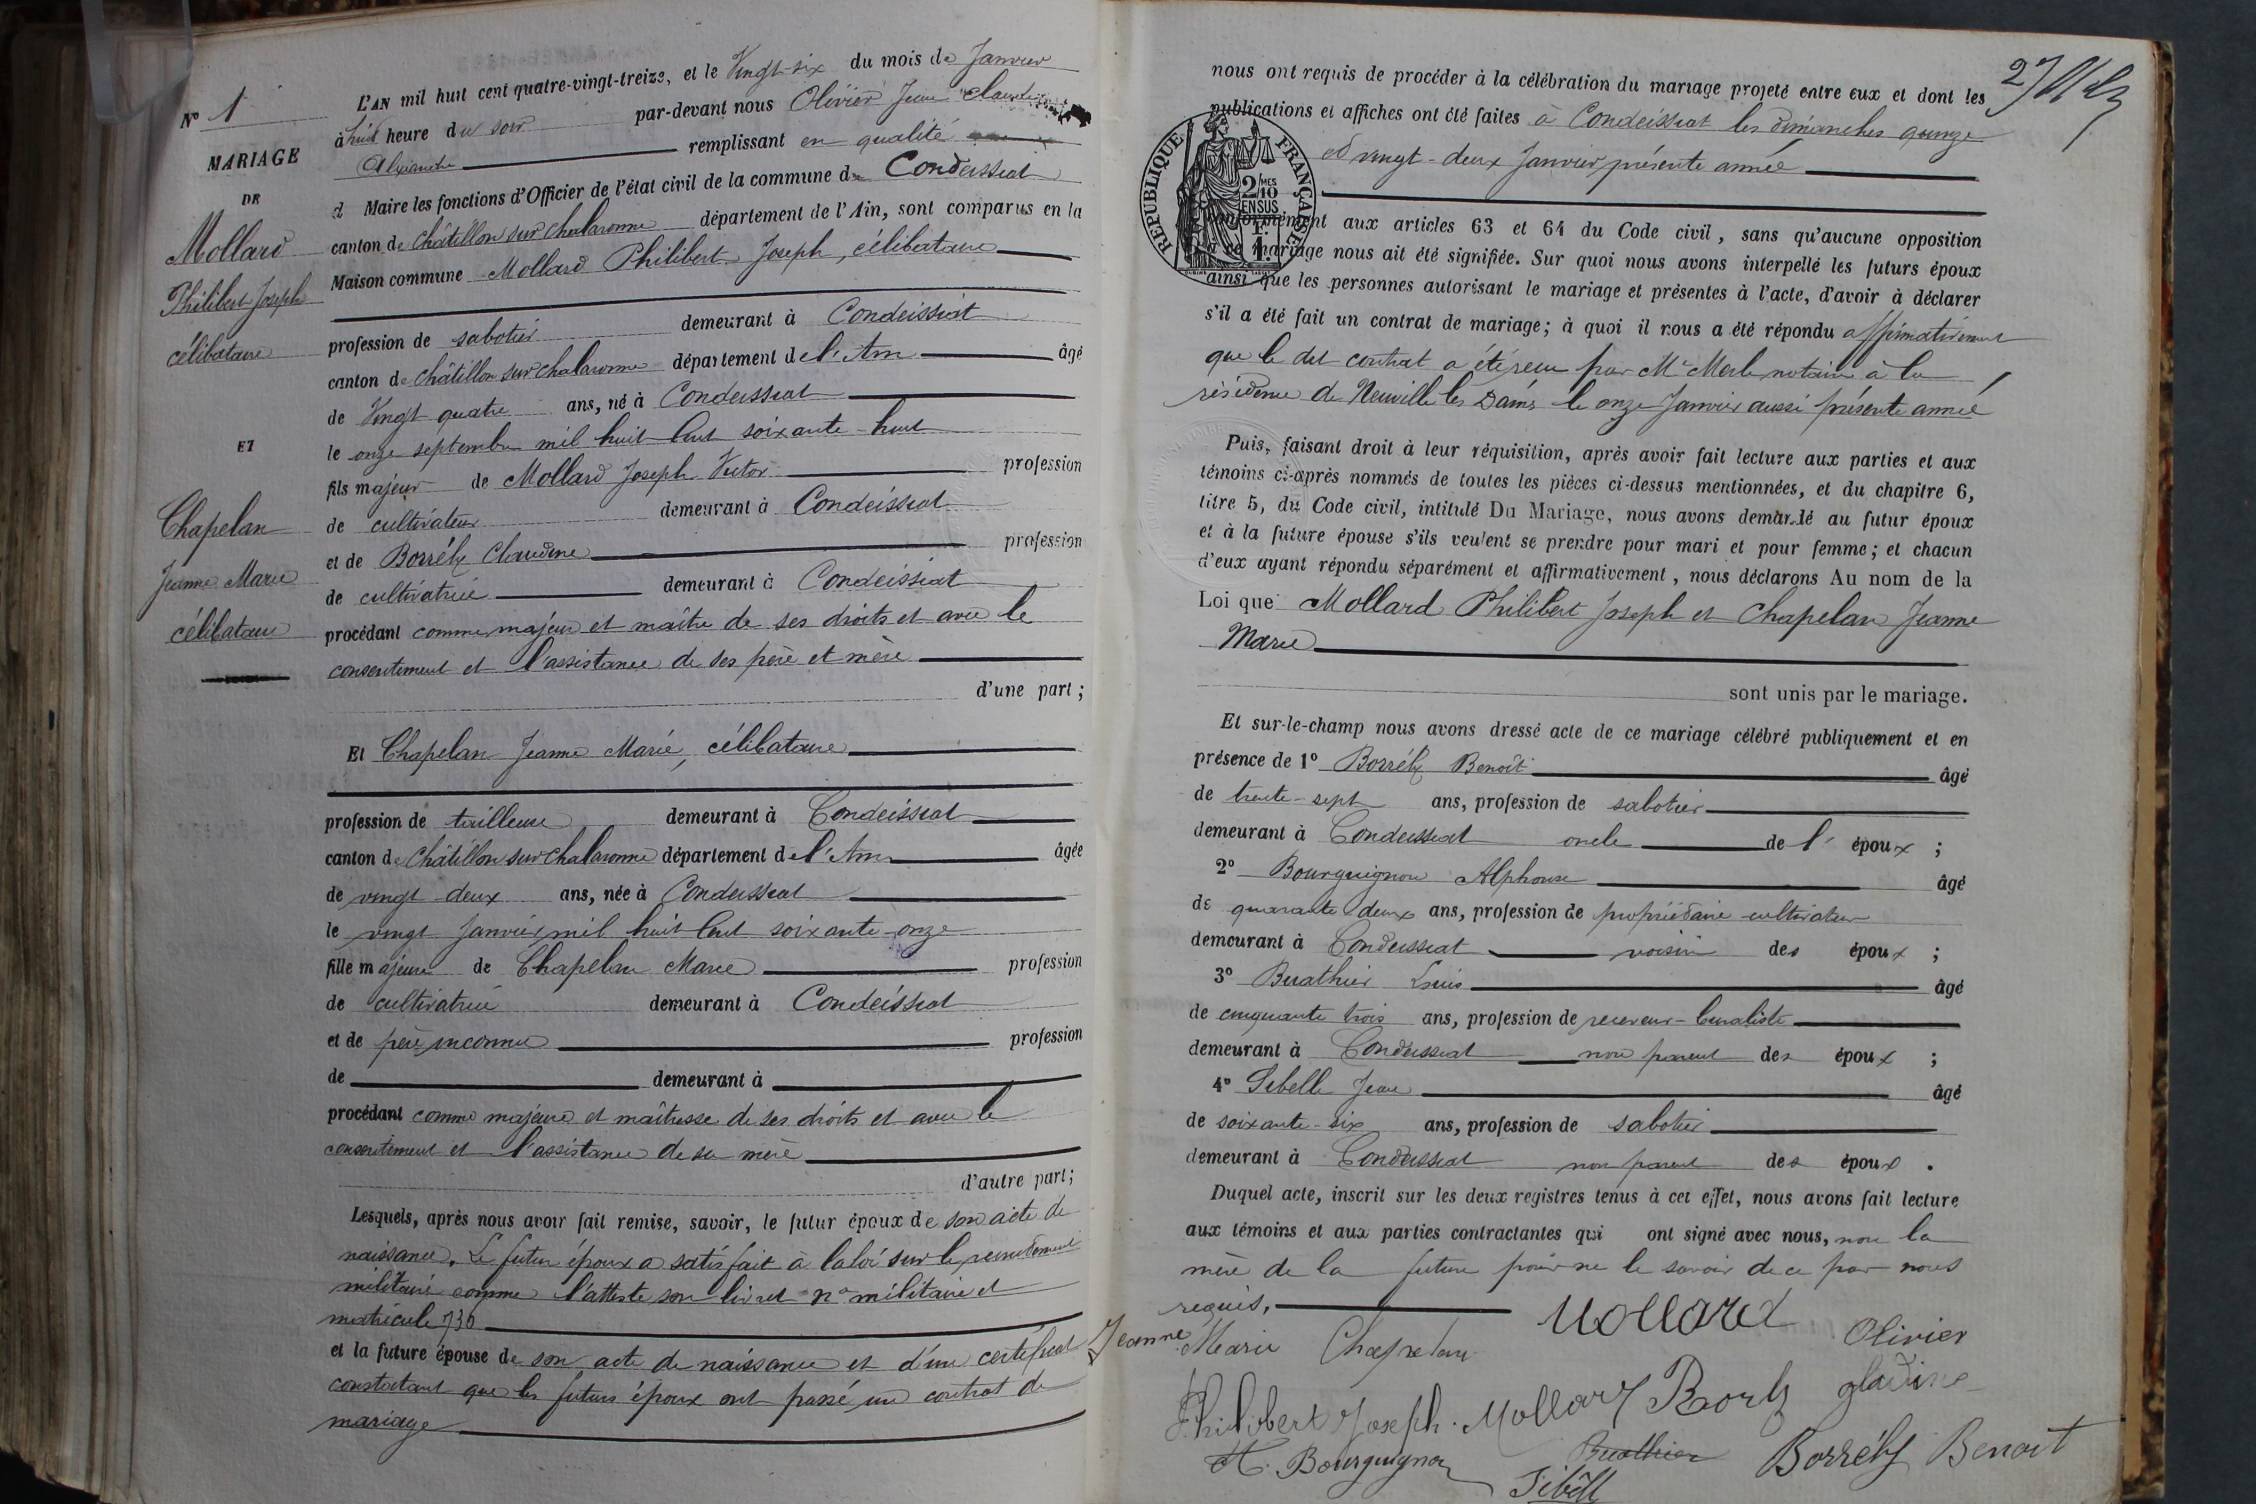 N° 1
MARIAGE
DE
Mollard
Philibert Joseph
célibataire
ET
Chapelan
Jeanne Marie
célibataire
L'AN mil huit cent quatre-vingt-treize, et le Vingt-six du mois de Janvier
à huit heure du soir par-devant nous Olivier Jean Claude
Alexandre remplissant en qualité
d Maire les fonctions d'Officier de l'état civil de la commune de Condeissiat
canton de Châtillon sur Chalaronne département de l'Ain, sont comparus en la
Maison commune Mollard Philibert Joseph, célibataire
profession de sabotier demeurant à Condeissiat
canton de Châtillon sur Chalaronne département de l'Ain âgé
de Vingt quatre ans, né à Condeissiat
le onze septembre mil huit Cent soixante-huit
fils majeur de Mollard Joseph Victor profession
de cultivateur demeurant à Condeissiat
et de Borrély Claudine profession
de cultivatrice demeurant à Condeissiat
procédant comme majeur et maître de ses droits et avec le
consentement et l'assistance de ses père et mère
d'une part;
Et Chapelan Jeanne Marie, célibataire
profession de tailleuse demeurant à Condeissiat
canton de Châtillon sur Chalaronne département de l'Ain âgée
de vingt-deux ans, née à Condeissiat
le vingt Janvier mil huit Cent soixante-onze
fille majeure de Chapelan Marie profession
de cultivatrice demeurant à Condeissiat
et de père inconnu profession
de demeurant à
procédant comme majeure et maîtresse de ses droits et avec le
consentement et l'assistance de sa mère
d'autre part;
Lesquels, après nous avoir fait remise, savoir, le futur époux de son acte de
naissance. Le futur époux a satisfait à la loi sur le recrutement
militaire comme l'atteste son livret n° militaire et
matricule 736
et la future épouse de son acte de naissance et d'un certificat
constatant que les futurs époux ont passé un contrat de
mariage
27
nous ont requis de procéder à la célébration du mariage projeté entre eux et dont les
publications et affiches ont été faites à Condeissiat les dimanches quinze
et vingt-deux Janvier, présente année
RÉPUBLIQUE FRANÇAISE
2/10 MES
EN SUS
conformément aux articles 63 et 64 du Code civil, sans qu'aucune opposition
à ce mariage nous ait été signifiée. Sur quoi nous avons interpellé les futurs époux
ainsi que les personnes autorisant le mariage et présentes à l'acte, d'avoir à déclarer
s'il a été fait un contrat de mariage; à quoi il nous a été répondu affirmativement
que le dit contrat a été reçu par Me Merle notaire à la
résidence de Neuville les Dames le onze Janvier aussi présente année
Puis, faisant droit à leur réquisition, après avoir fait lecture aux parties et aux
témoins ci-après nommés de toutes les pièces ci-dessus mentionnées, et du chapitre 6,
titre 5, du Code civil, intitulé Du Mariage, nous avons demandé au futur époux
et à la future épouse s'ils veulent se prendre pour mari et pour femme; et chacun
d'eux ayant répondu séparément et affirmativement, nous déclarons Au nom de la
Loi que Mollard Philibert Joseph et Chapelan Jeanne
Marie
sont unis par le mariage.
Et sur-le-champ nous avons dressé acte de ce mariage célébré publiquement et en
présence de 1° Borrély Benoît âgé
de trente-sept ans, profession de sabotier
demeurant à Condeissiat oncle de l' époux ;
2° Bourguignon Alphonse âgé
de quarante deux ans, profession de propriétaire cultivateur
demeurant à Condeissiat voisin des époux ;
3° Buathier Louis âgé
de cinquante trois ans, profession de receveur-buraliste
demeurant à Condeissiat non parent des époux ;
4° Sibelle Jean âgé
de soixante-six ans, profession de sabotier
demeurant à Condeissiat non parent des époux .
Duquel acte, inscrit sur les deux registres tenus à cet effet, nous avons fait lecture
aux témoins et aux parties contractantes qui ont signé avec nous, non la
mère de la future pour ne le savoir de ce par nous
requis,
Mollard
Jeanne Marie Chapelan
Olivier
Philibert Joseph Mollard
H. Bourguignon
Buathier
Borrély Benoit
Sibell